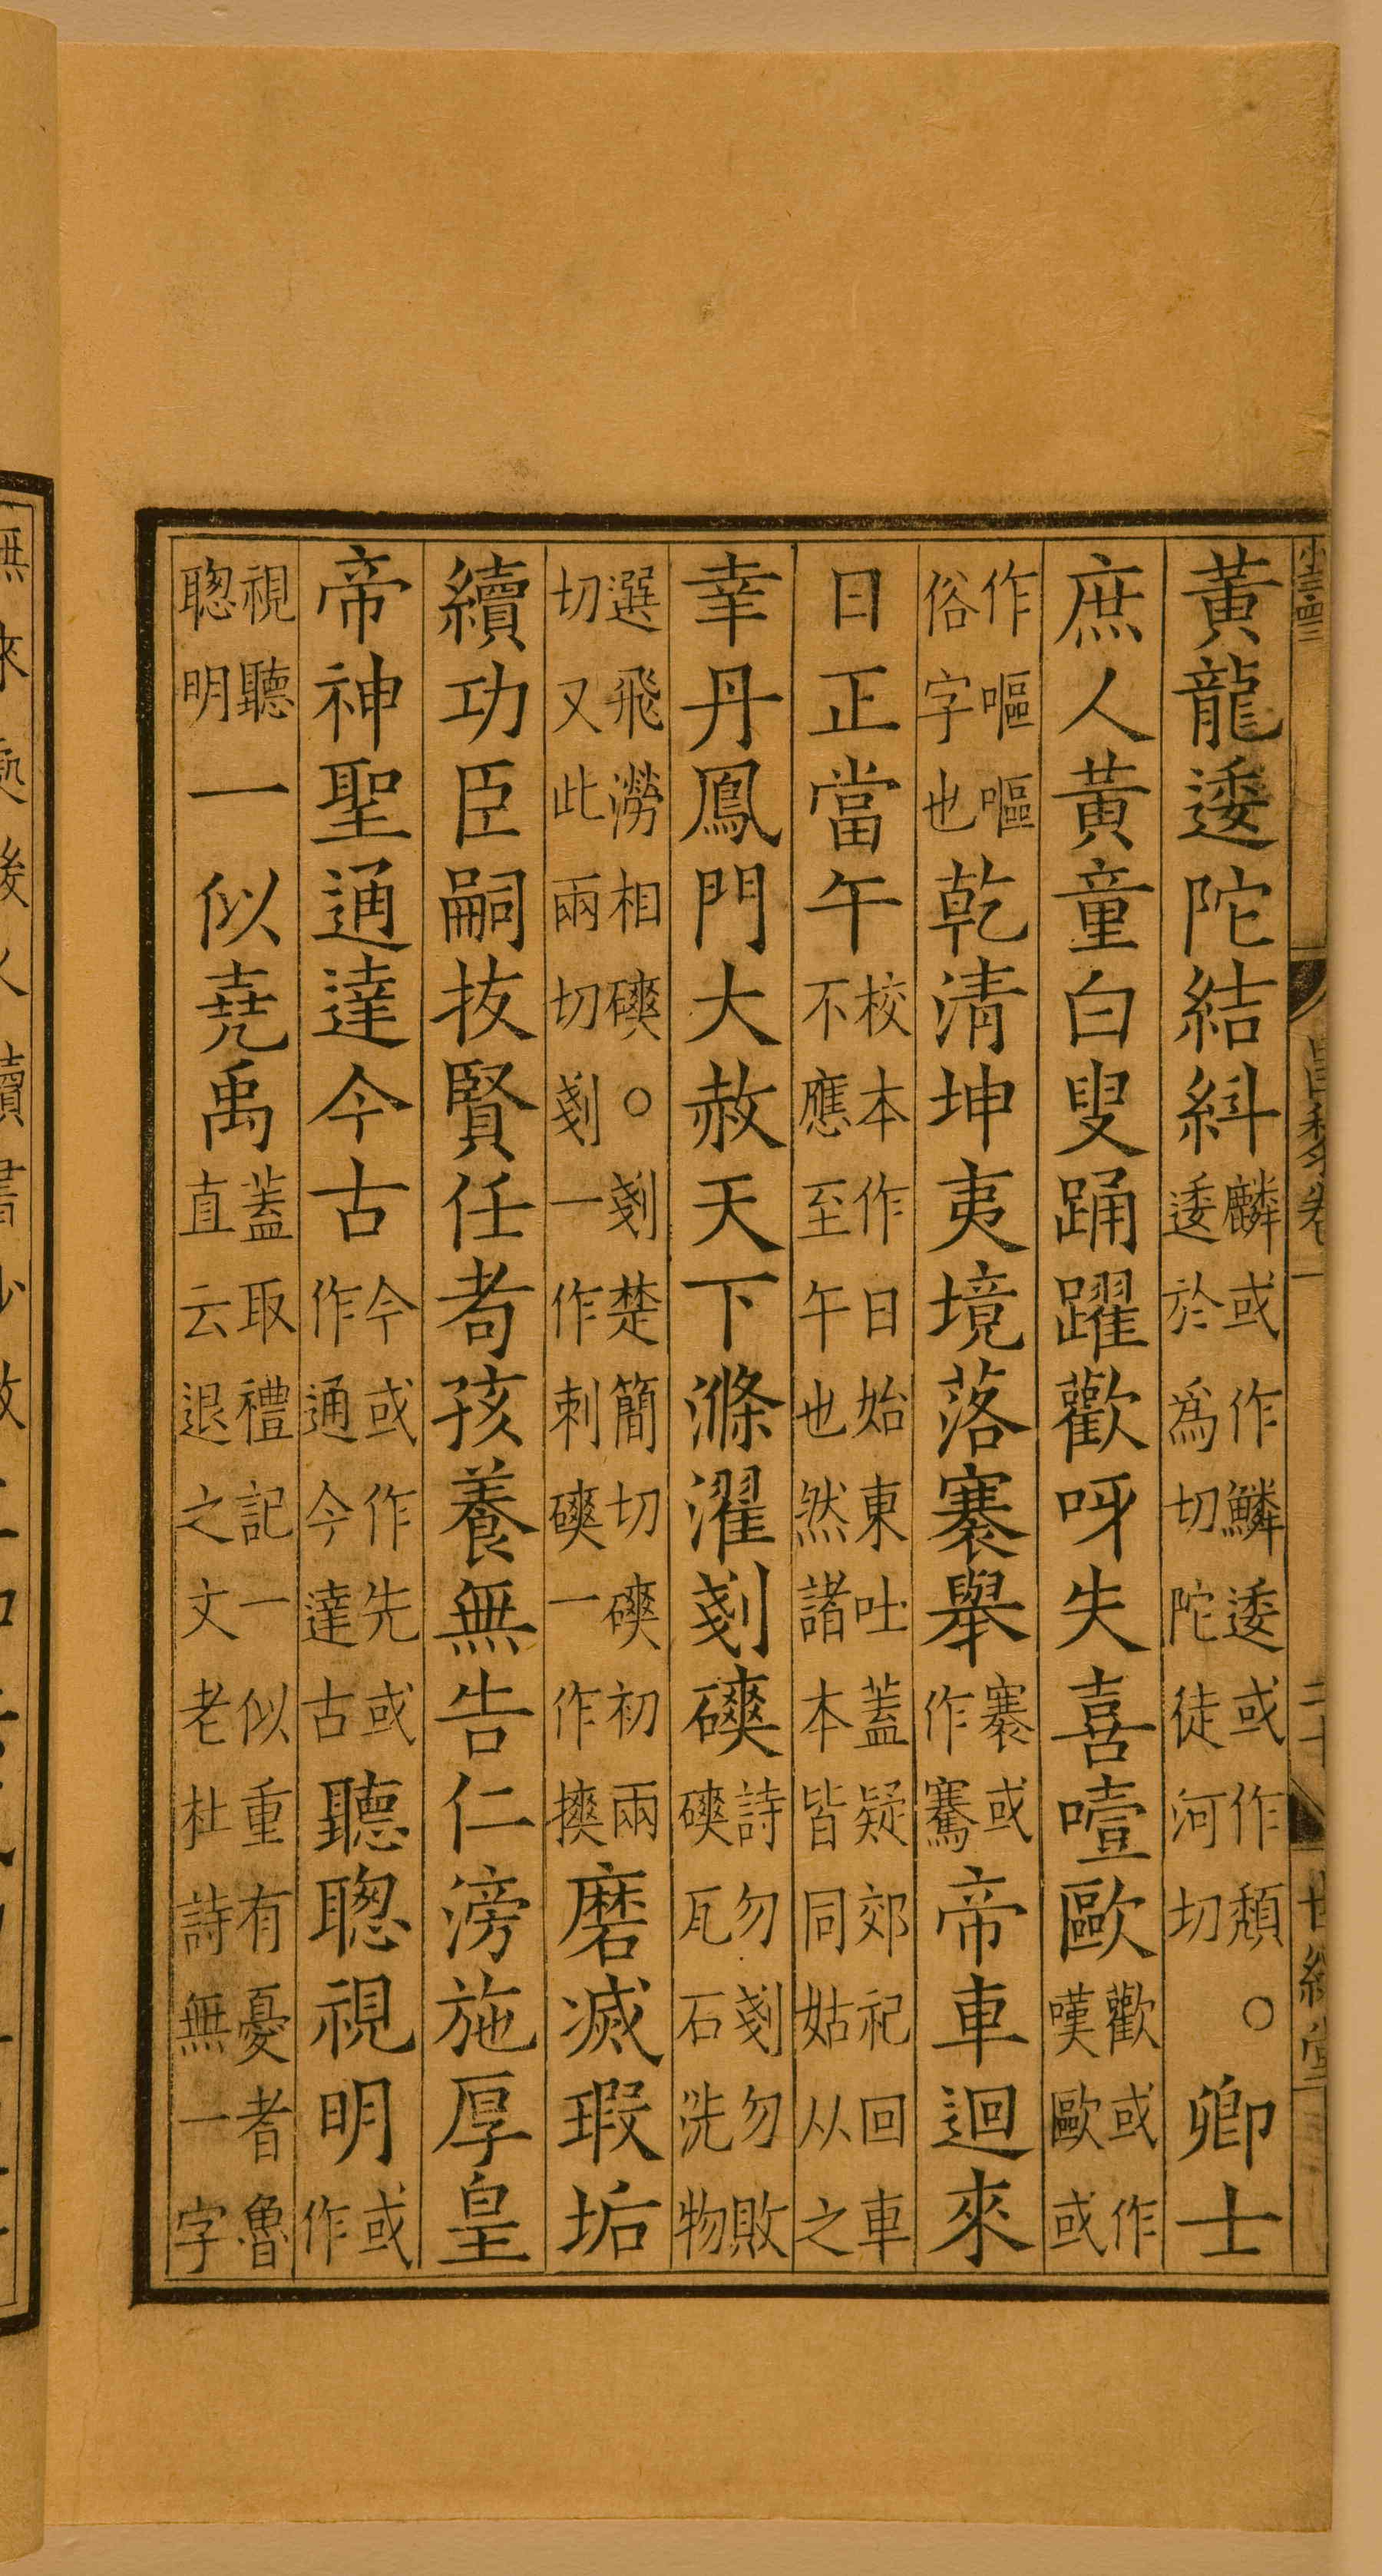 黃龍逶陀結糾麟或作鱗逶或作頹。逶於爲切陀徒河切卿士
庶人黃童白叟踊躍歡呀失喜噎歐歡或作嘆歐或
作嘔嘔俗字也乾清坤夷境落褰舉褰或作騫帝車迴來
日正當午校本作日始東吐蓋疑郊祀回車不應至午也然諸本皆同姑从之
幸丹鳳門大赦天下滌濯剗磢詩勿剗勿敗磢瓦石洗物
選飛澇相磢。剗楚簡切磢初兩切又此兩切剗一作刺磢一作摤磨滅瑕垢
續功臣嗣拔賢任耇孩養無告仁滂施厚皇
帝神聖通達今古今或作先或作通今達古聽聰視明或作
視聽聰明一似堯禹蓋取禮記一似重有憂者魯直云退之文老杜詩無一字
昌黎卷一
二十